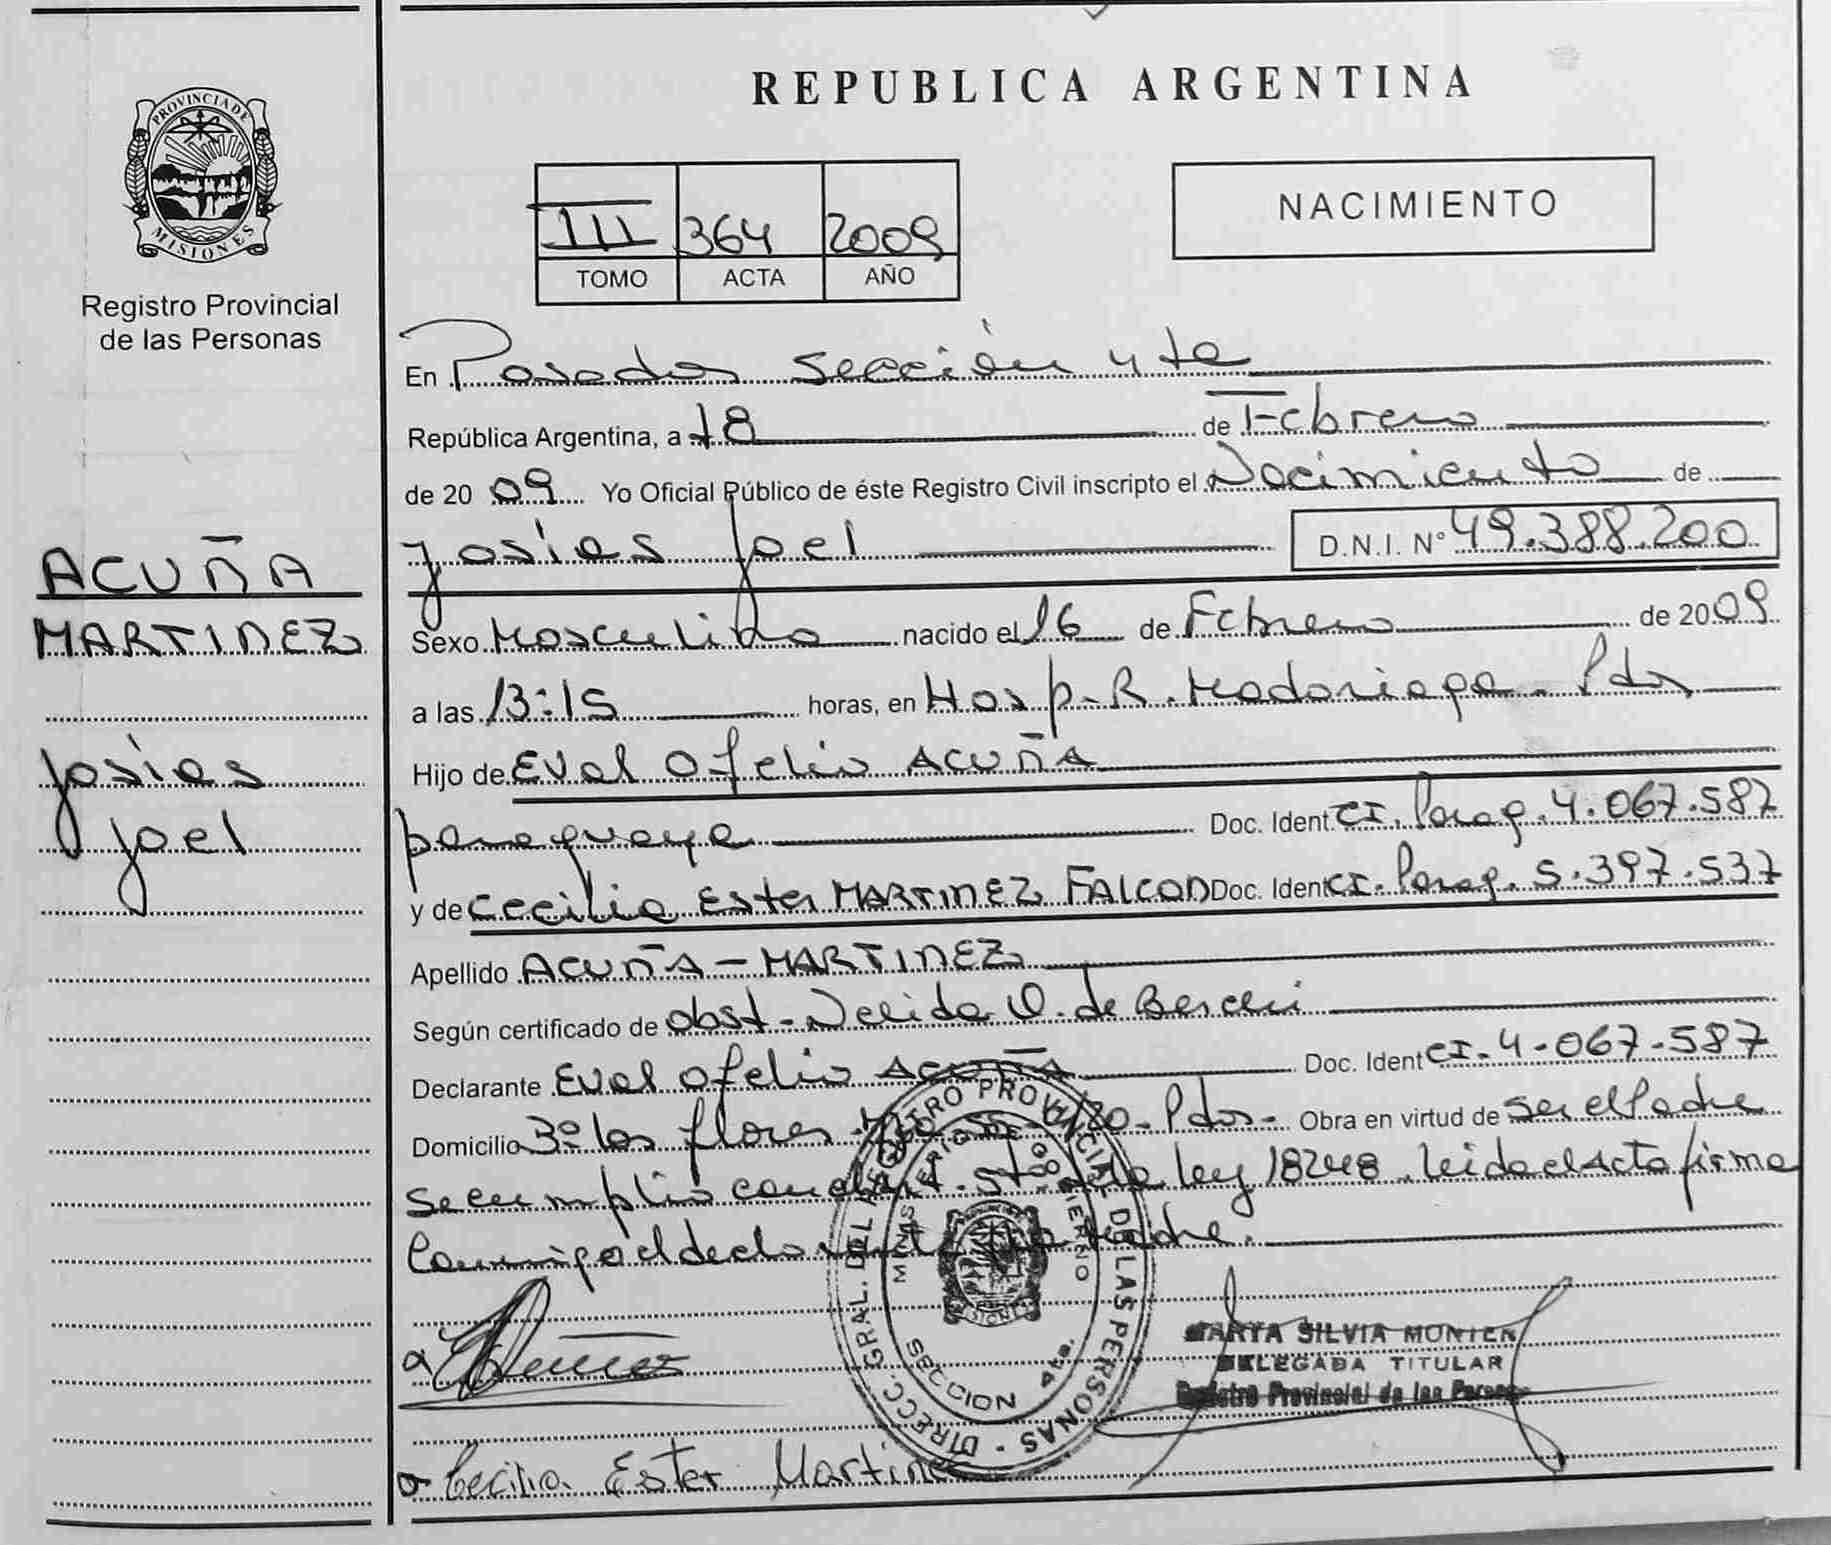 PROVINCIA DE
MISIONES
Registro Provincial
de las Personas
ACUÑA
MARTINEZ
Josias
Joel
REPUBLICA ARGENTINA
III 364 2009
TOMO ACTA AÑO
NACIMIENTO
En Posadas sección 4ta
República Argentina, a 18 de Febrero
de 2009 Yo Oficial Público de éste Registro Civil inscripto el Nacimiento de
Josias Joel D.N.I. N° 49.388.200
Sexo Masculino nacido el 16 de Febrero de 2009
a las 13:15 horas, en Hosp. R. Madariaga - Pdas
Hijo de Eval Ofelio ACUÑA
paraguaya Doc. Ident CI. Parag. 4.067.587
y de Cecilia Ester MARTINEZ FALCON Doc. Ident CI. Parag. 5.397.537
Apellido ACUÑA - MARTINEZ
Según certificado de obst - Nelida O. de
Declarante Eval Ofelio ACUÑA Doc. Ident CI - 4-067-587
Domicilio Bº los flores - Pdas - Obra en virtud de ser el Padre
Se cumplio con el art. de la ley 18248. leida el Acta firma
conmigo el declarante y la Madre.
DIRECC. GRAL. DEL REGISTRO PROVINCIAL DE LAS PERSONAS
MINISTERIO DE GOBIERNO
SECCION 4ta.
MARTA SILVIA MONIER
DELEGADA TITULAR
Registro Provincial de las Personas
Cecilia Ester Martinez